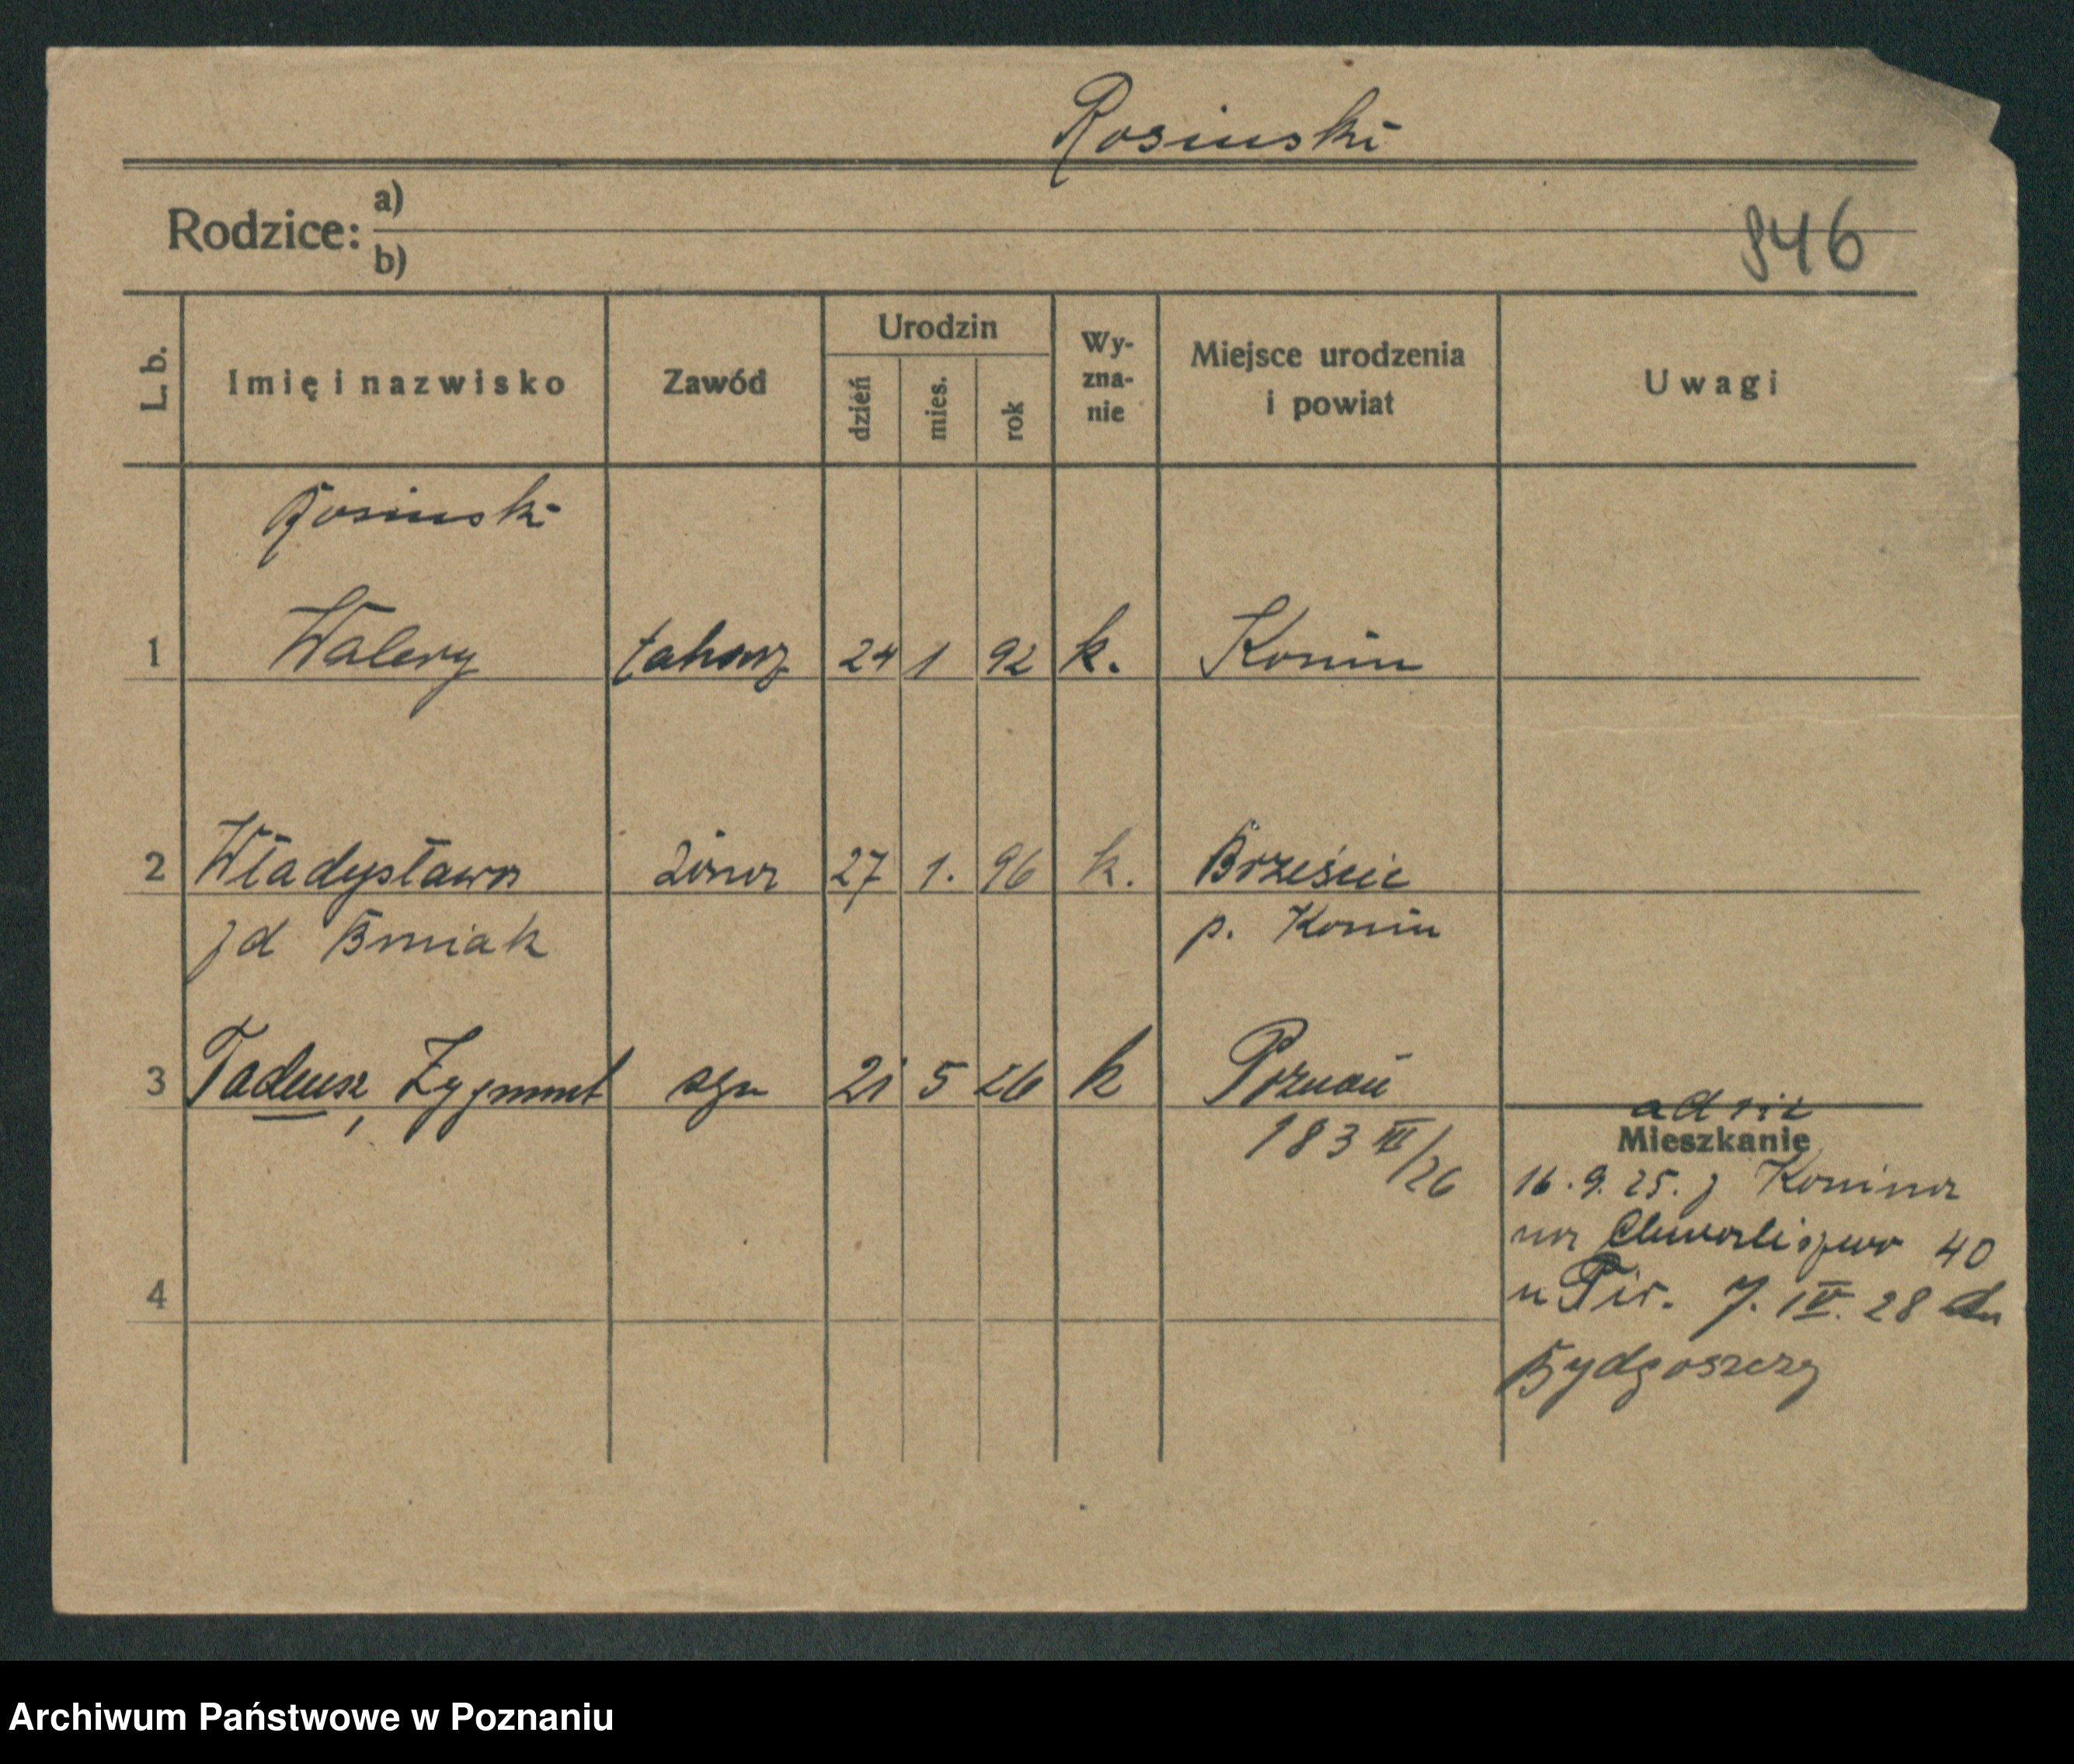 Rosinski
Rodzice: a)
b)
846
L. b. Imię i nazwisko Zawód Urodzin dzień mies. rok Wy-zna-nie Miejsce urodzenia i powiat Uwagi
Rosinski
1 Walery 24 1 92 k. Konin
2 Władysława żona 27 1. 96 k. Brzeście
zd p. Konin
3 Tadeusz, Zygmunt syn 21 5 26 k Poznań
183 III/26
Mieszkanie
16.9.25. z Konina
na Chwaliszewo 40
7. IV. 28 do
Bydgoszczy
4
Archiwum Państwowe w Poznaniu